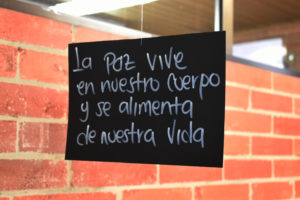 La Paz vive
en nuestro cuerpo
y se alimenta
de nuestra vida